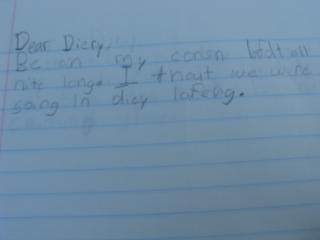 Dear Diery,
Be an my consn bfdt all
nite long. I thout we wire
going in diey lafeng.